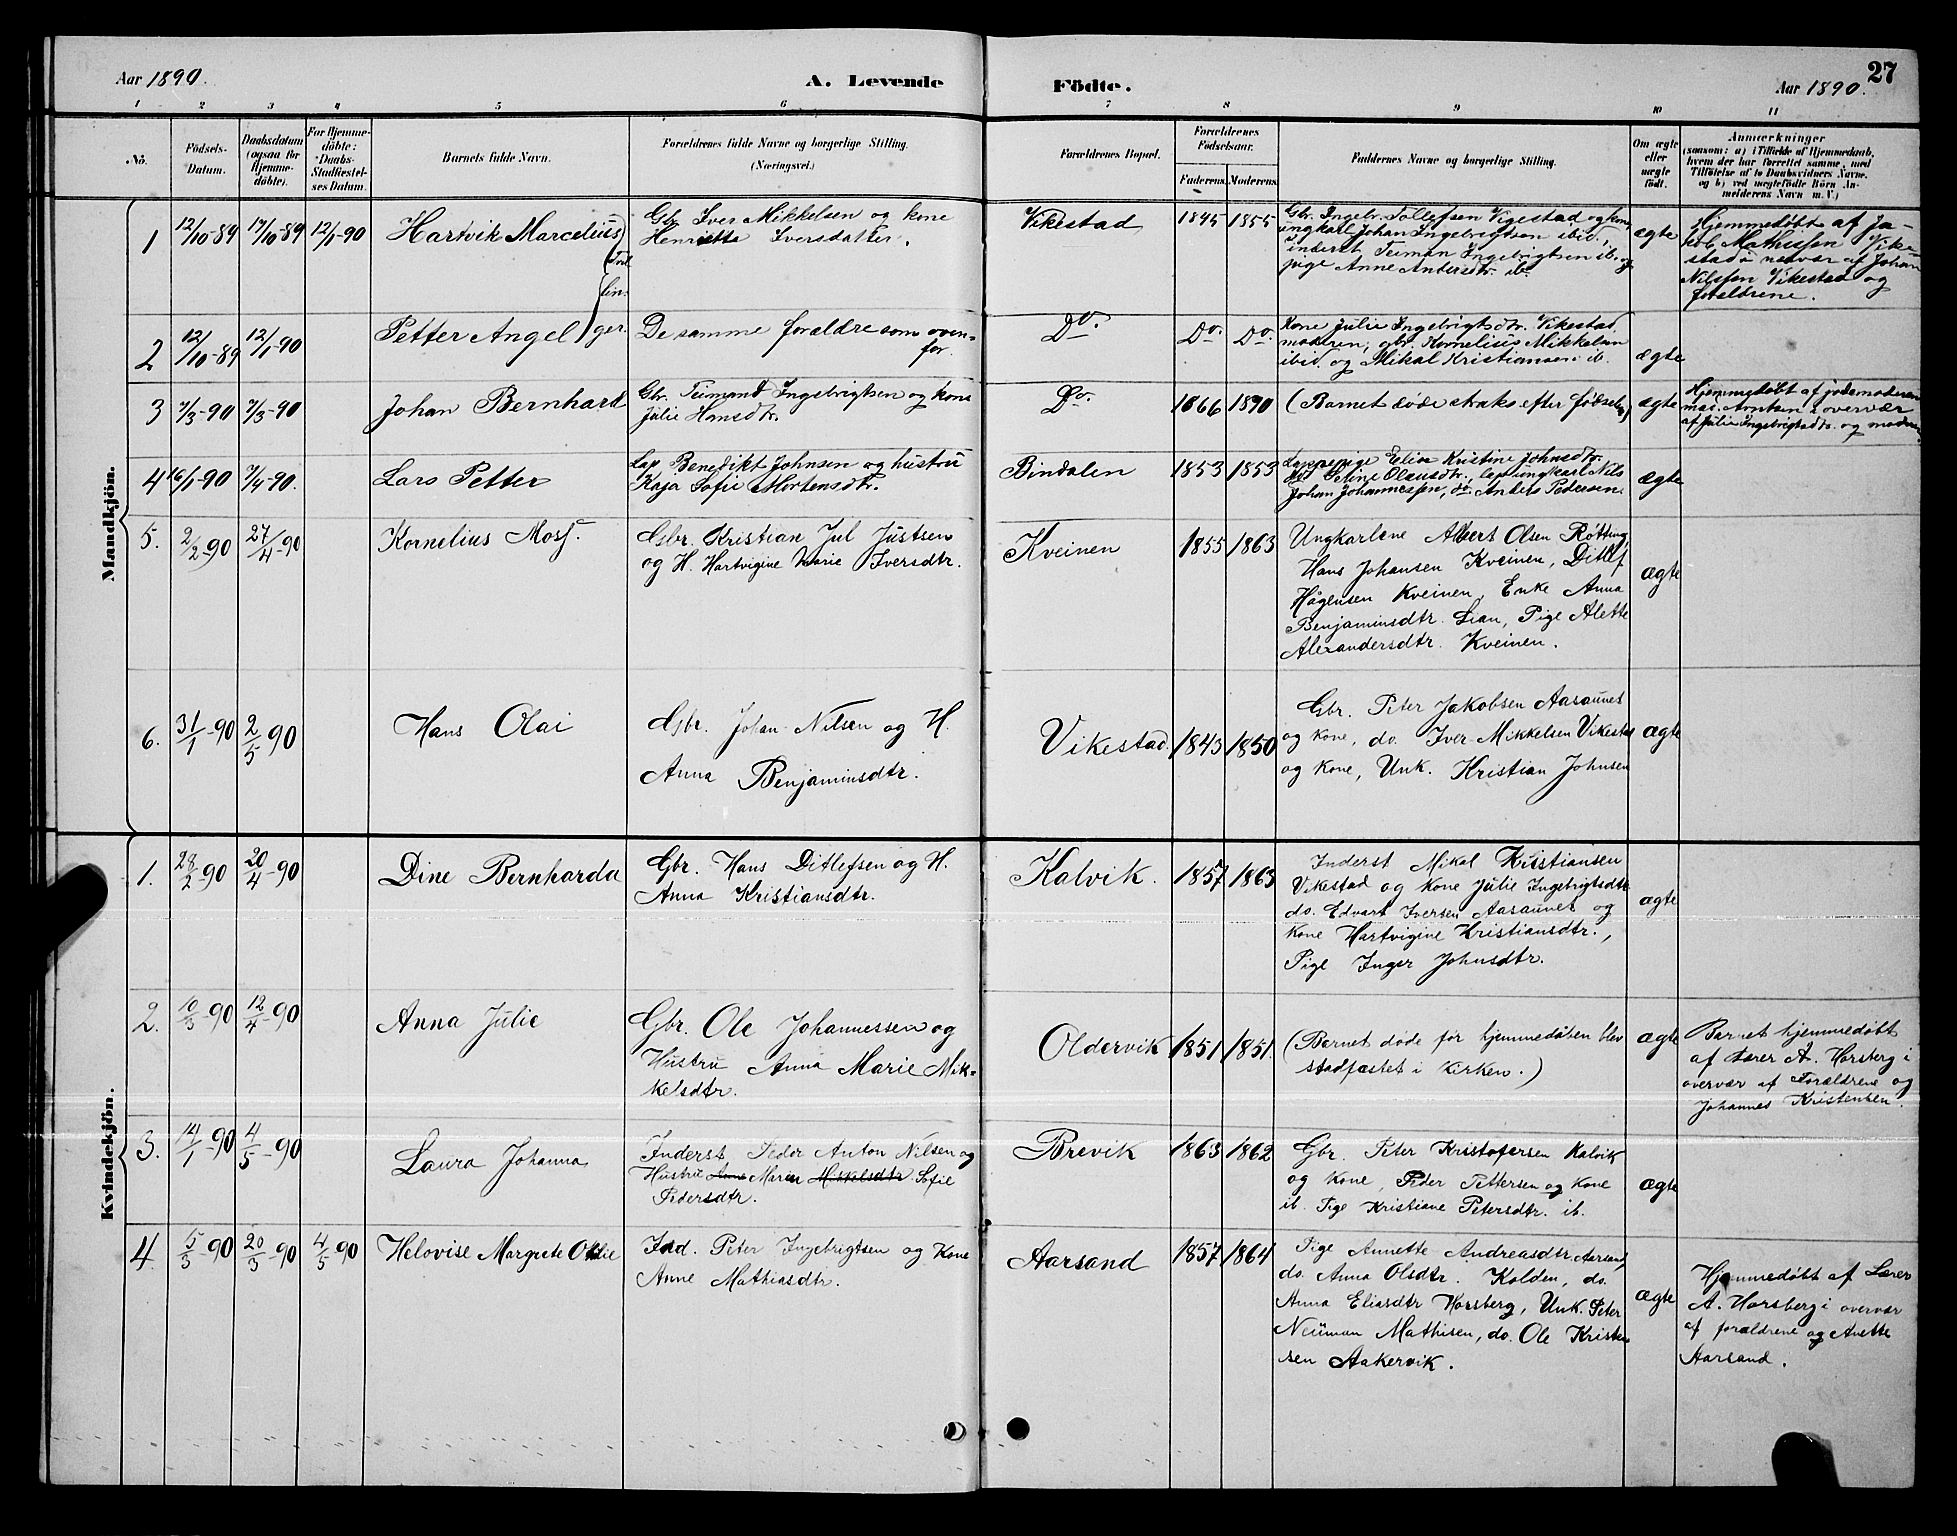 Aar 1890. A. Levende Födte. Aar 1890. 27
1 2 3 4 5 6 7 8 9 10 11
No. Födsels-Datum. Daabsdatum (ogsaa for Hjemmedöbte). For Hjemmedöbte: Daabs-Stadfæstelses Datum. Barnets fulde Navn. Forældrenes fulde Navne og borgerlige Stilling. (Næringsvei.) Forældrenes Bopæl. Forældrenes Födselsaar. Faderens. Moderens. Faddernes Navne og borgerlige Stilling. Om ægte eller uægte født. Anmærkninger (saasom: a) i Tilfælde af Hjemmedaab, hvem der har forrettet samme, med Tilföielse af to Daabsvidners Navne, og b) ved uægtefödte Börn Anmelderens Navn m. V.)
Mandkjön.
1 12/10-89 17/10-89 12/1-90 Hartvik Marcelius
(Tvil
lin-
ger.
Gbr. Iver Mikkelsen og kone
Henriette Iversdatter.
Vikestad 1845 1855
Gbr. Ingebr. Tollefsen Vigestad og kone
ungkarl Johan Ingebrigtsen ibid.,
inderst Teiman Ingebrigtsen ib. og
pige Anne Andersdtr. ib.
ægte
Hjemmedøbt af Ja-
kob Mathissen Vike-
stad i nærvær af Johan
Nilssen Vikestad og
forældrene.
2 12/10-89 12/1-90 Petter Angel
De samme forældre som oven-
for.
Do. Do. Do.
Kone Julie Ingebrigtsdtr. Vikestad,
moderen, gbr. Kornelius Mikkelsen
ibid. og Mikal Kristiansen ib.
ægte
3 7/3-90 7/3-90 Johan Bernhard
Gbr. Teimand Ingebrigtsen og kone
Julie Hansdtr.
Do. 1866 1890 (Barnet døde straks efter fødselen) ægte
Hjemmedøbt af jodemoderen
mad. Arntsen i overvær
af Julie Ingebrigtsdtr. og moderen.
4 16/1-90 7/4-90. Lars Petter
Lap Benedikt Johnsen og hustru
Kaja Sofie Mortensdtr.
Bindalen 1853 1853
Lappepige Elen Kristine Johnsdtr.
do Petine Olausdtr., lapungkarl Nils
Johan Johannessen, do Anders Pedersen.
ægte
5. 2/2-90 27/4-90 Kornelius Mosf.
Gbr. Kristian Jul Justsen
og H. Hartvigine Marie Iversdtr.
Kveinen 1855 1863
Ungkarlene Albert Olsen Røtting,
Hans Johansen Kveinen, Ditlef
Hågensen Kveinen, Enke Anna
Benjaminsdtr. Lian, Pige Alette
Alexandersdtr. Kveinen.
ægte
6. 31/1-90 2/5 90 Hans Olai
Gbr. Johan Nilsen og H.
Anna Benjaminsdtr.
Vikestad. 1843 1850
Gbr. Peter Jakobsen Aasaunet
og kone, do. Iver Mikkelsen Vikestad
og Kone, Unk. Kristian Johnsen
ægte
Kvindekjön.
1. 28/2-90 20/4-90 Dine Bernharda
Gbr. Hans Ditlefsen og H.
Anna Kristiansdtr.
Kalvik. 1857 1863
Inderst Mikal Kristiansen
Vikestad og Kone Julie Ingebrigtsdtr
do. Edvart Iversen Aasaunet og
Kone Hartvigine Kristiansdtr.,
Pige Inger Johnsdtr.
ægte
2. 10/3-90 12/4-90 Anna Julie
Gbr. Ole Johannessen og
Hustru Anna Marie Mik-
kelsdtr.
Oldervik 1851 1851.
(Barnet døde før hjemmedåben blev
stadfæstet i Kirken.)
ægte
Barnet hjemmedøbt
af Lærer A. Horsberg i
overvær af Forældrene og
Johannes Kristensen.
3. 14/1-90 4/5-90 Laura Johanna
Inderst Peder Anton Nilsen og
Hustru Anna Maren Mikkelsdtr Sofie
Pedersdtr.
Brevik 1863 1862
Gbr. Peter Kristofersen Kalvik
og Kone, Peder Pettersen og Kone
ib. Pige Kristiane Petersdtr. ib.
ægte
4. 15/3-90 20/3-90 4/5-90 Helovise Margrete Otilie
Ind. Peter Ingebrigtsen og Kone
Anne Mathiasdtr.
Aarsand 1857 1864
Pige Annette Andreasdtr. Aarsand,
do. Anna Olsdtr. Kolden, do.
Anna Eliasdtr Horsberg, Unk. Peter
Neüman Mathisen, do. Ole Kristen-
sen Aakervik.
ægte
Hjemmedøbt af Lærer
A. Horsberg i overvær
af forældrene og Anette
Aarsand.